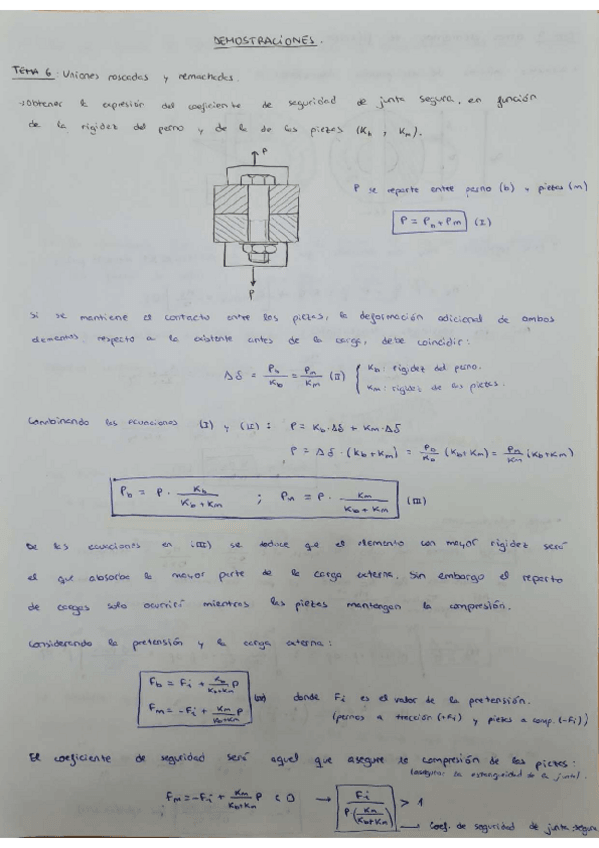 DEMOSTRACIONES.
TEMA 6: Uniones roscadas y remachadas.
Obtener la expresión del coeficiente de seguridad de junta segura, en función
de la rigidez del perno y de la de las piezas (Kb, Km).
P
P se reparte entre perno (b) y piezas (m)
P = Pb + Pm (I)
P
Si se mantiene el contacto entre las piezas, la deformación adicional de ambos
elementos, respecto a la existente antes de la carga, debe coincidir:
Δδ = Pb/Kb = Pm/Km (II) { Kb: rigidez del perno.
Km: rigidez de las piezas.
Combinando las ecuaciones (I) y (II): P = Kb·Δδ + Km·Δδ
P = Δδ·(Kb+Km) = Pb/Kb (Kb+Km) = Pm/Km (Kb+Km)
Pb = P · Kb/(Kb+Km) ; Pm = P · Km/(Kb+Km) (III)
De las ecuaciones en (III) se deduce que el elemento con mayor rigidez será
el que absorba la mayor parte de la carga externa. Sin embargo el reparto
de cargas solo ocurrirá mientras las piezas mantengan la compresión.
Considerando la pretensión y la carga externa:
Fb = Fi + Kb/(Kb+Km) P
Fm = -Fi + Km/(Kb+Km) P
donde Fi es el valor de la pretensión.
(pernos a tracción (+Fi) y piezas a comp. (-Fi))
El coeficiente de seguridad será aquel que asegure la compresión de las piezas:
(asegurar la estanqueidad de la junta).
Fm = -Fi + Km/(Kb+Km) P < 0 → Fi/(P·(Km/(Kb+Km))) > 1
→ Coef. de seguridad de junta segura